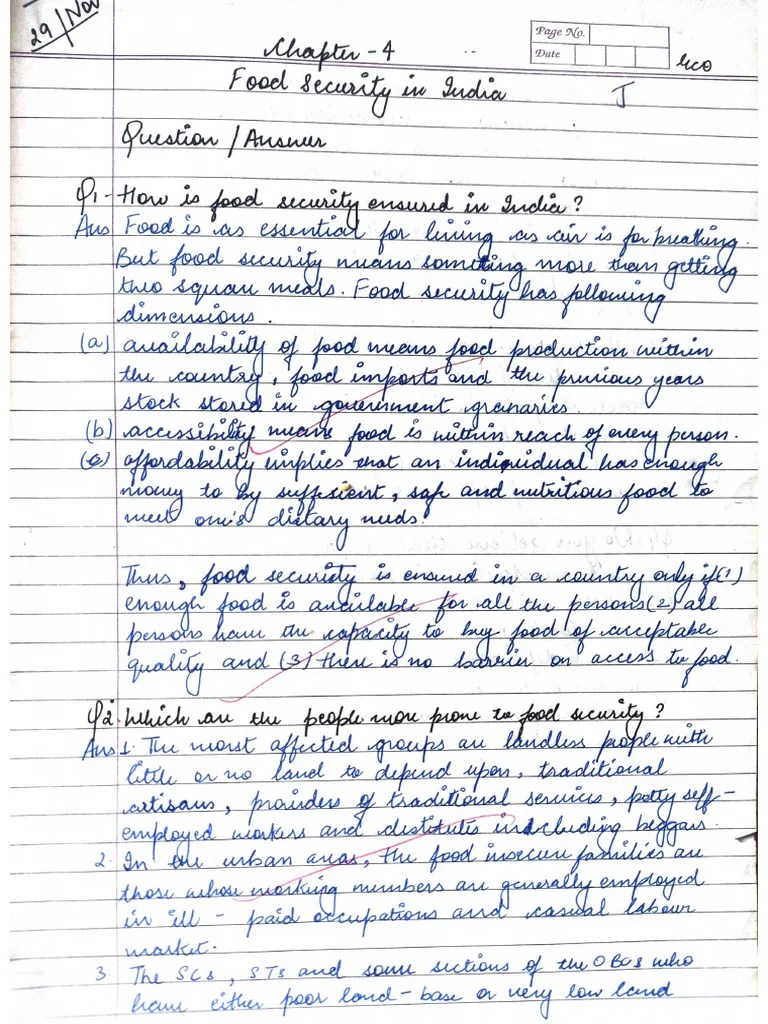 29/Nov
Page No.
Date
Chapter - 4
Eco
Food Security in India
Question / Answer
Q1 - How is food security ensured in India?
Ans Food is as essential for living as air is for breathing.
But food security means something more than getting
two square meals. Food security has following
dimensions.
(a) availability of food means food production within
the country, food imports and the previous years
stock stored in government granaries.
(b) accessibility means food is within reach of every person.
(c) affordability implies that an individual has enough
money to by sufficient, safe and nutritious food to
meet one's dietary needs.
Thus, food security is ensured in a country only if (1)
enough food is available for all the persons (2) all
persons have the capacity to buy food of acceptable
quality and (3) there is no barrier on access to food.
Q2. Which are the people more prone to food security?
Ans 1. The worst affected groups are landless people with
little or no land to depend upon, traditional
artisans, providers of traditional services, petty self-
employed workers and destitutes including beggars.
2. In the urban areas, the food insecure families are
those whose working members are generally employed
in ill - paid occupations and casual labour
market.
3 The SCs, STs and some sections of the OBCs who
have either poor land - base or very low land